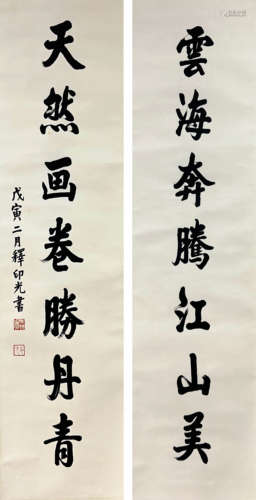 雲海奔騰江山美
天然画卷勝丹青
戊寅二月釋印光書